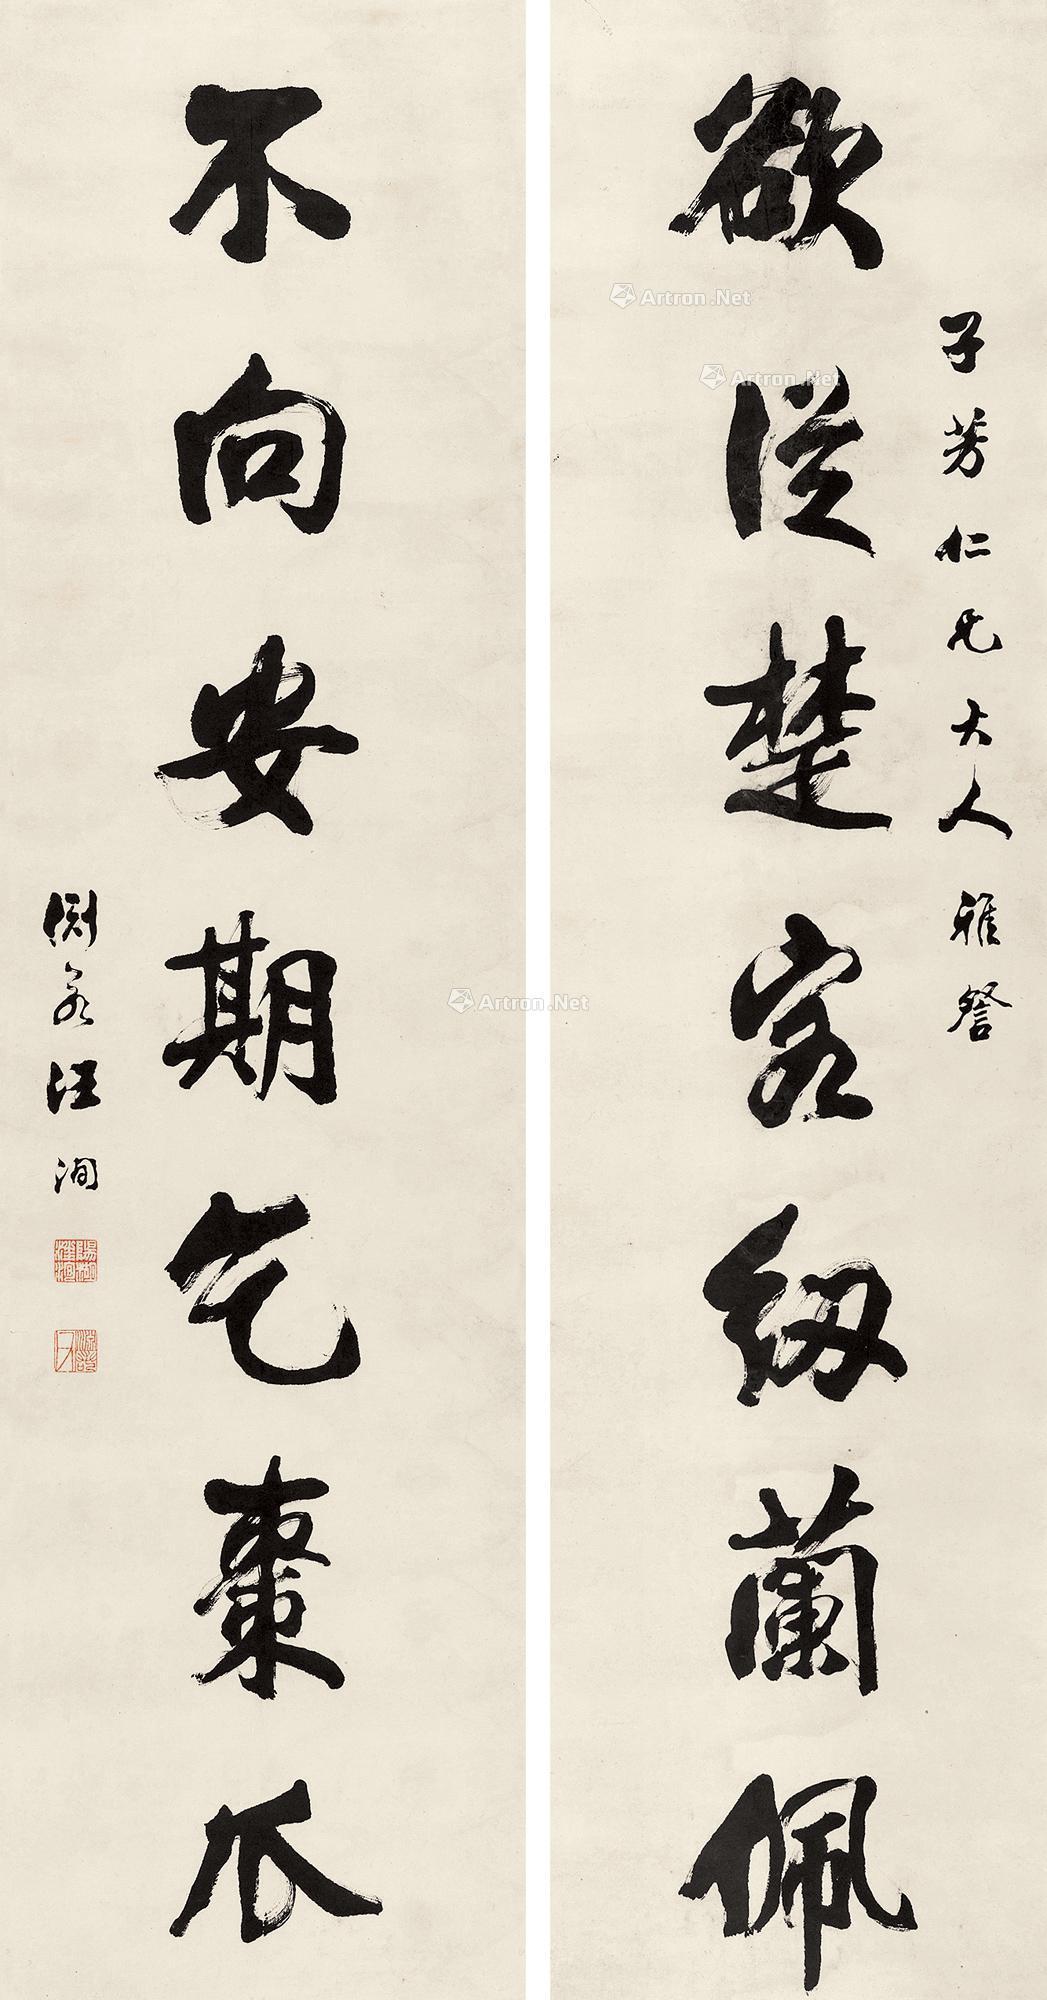 子芳仁兄大人雅詧
欲從楚客紉蘭佩
不向安期乞棗瓜
淵若汪洵
Artron.Net
Artron.Net
Artron.Net